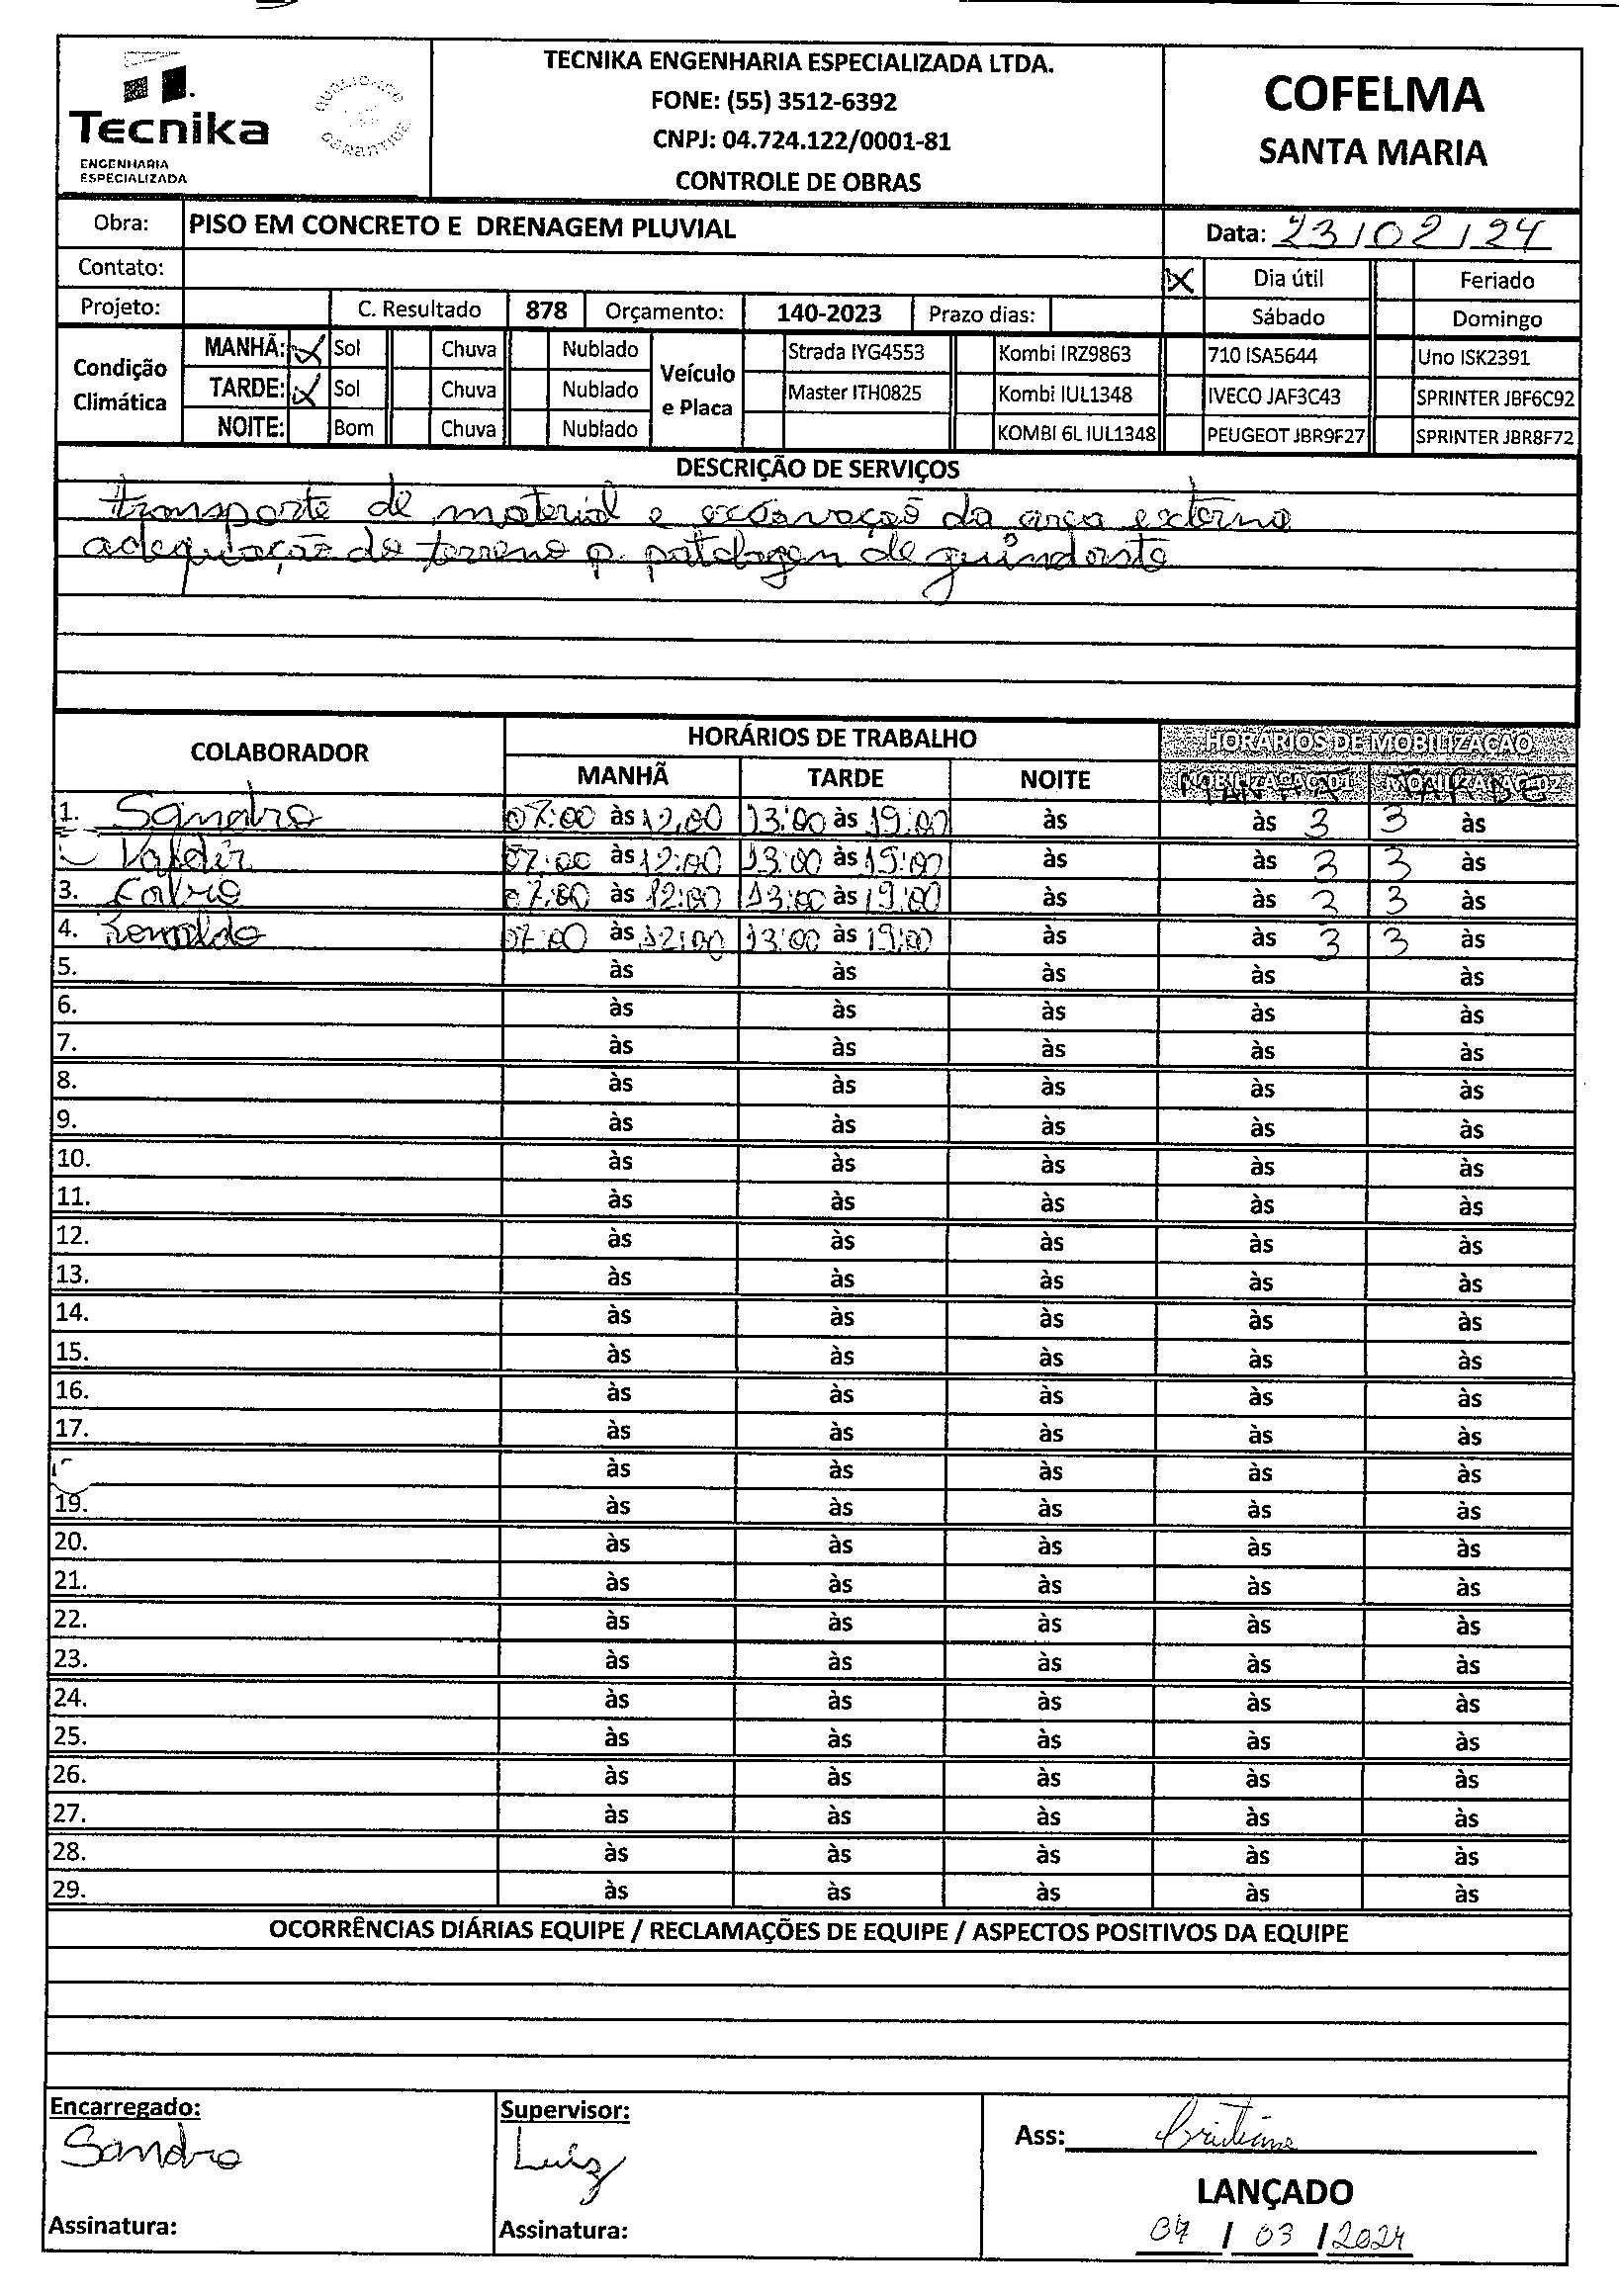 Tecnika
ENGENHARIA
ESPECIALIZADA
TECNIKA ENGENHARIA ESPECIALIZADA LTDA.
FONE: (55) 3512-6392
CNPJ: 04.724.122/0001-81
CONTROLE DE OBRAS
COFELMA
SANTA MARIA
Obra: PISO EM CONCRETO E DRENAGEM PLUVIAL
Data: 23/02/24
Contato:
X Dia útil Feriado
Projeto: C. Resultado 878 Orçamento: 140-2023 Prazo dias: Sábado Domingo
Condição Climática
MANHÃ: X Sol Chuva Nublado
TARDE: X Sol Chuva Nublado
NOITE: Bom Chuva Nublado
Veículo e Placa
Strada IYG4553 Kombi IRZ9863 710 ISA5644 Uno ISK2391
Master ITH0825 Kombi IUL1348 IVECO JAF3C43 SPRINTER JBF6C92
KOMBI 6L IUL1348 PEUGEOT JBR9F27 SPRINTER JBR8F72
DESCRIÇÃO DE SERVIÇOS
transporte de material e escavação da area externa
adequação do terreno p. patolagen de guindaste
COLABORADOR HORÁRIOS DE TRABALHO HORÁRIOS DE MOBILIZAÇÃO
MANHÃ TARDE NOITE MOBILIZAÇAO 01 MOBILIZAÇAO 02
MANHÃ TARDE
1. Sandro 07:00 às 12:00 13:00 às 19:00 às às 3 3 às
Valdir 07:00 às 12:00 13:00 às 19:00 às às 3 3 às
3. 07:00 às 12:00 13:00 às 19:00 às às 3 3 às
4. Ronaldo 07:00 às 12:00 13:00 às 19:00 às às 3 3 às
5. às às às às às
6. às às às às às
7. às às às às às
8. às às às às às
9. às às às às às
10. às às às às às
11. às às às às às
12. às às às às às
13. às às às às às
14. às às às às às
15. às às às às às
16. às às às às às
17. às às às às às
às às às às às
19. às às às às às
20. às às às às às
21. às às às às às
22. às às às às às
23. às às às às às
24. às às às às às
25. às às às às às
26. às às às às às
27. às às às às às
28. às às às às às
29. às às às às às
OCORRÊNCIAS DIÁRIAS EQUIPE / RECLAMAÇÕES DE EQUIPE / ASPECTOS POSITIVOS DA EQUIPE
Encarregado:
Sandro
Assinatura:
Supervisor:
Luiz
Assinatura:
Ass: Cristiane
LANÇADO
04 / 03 / 2024